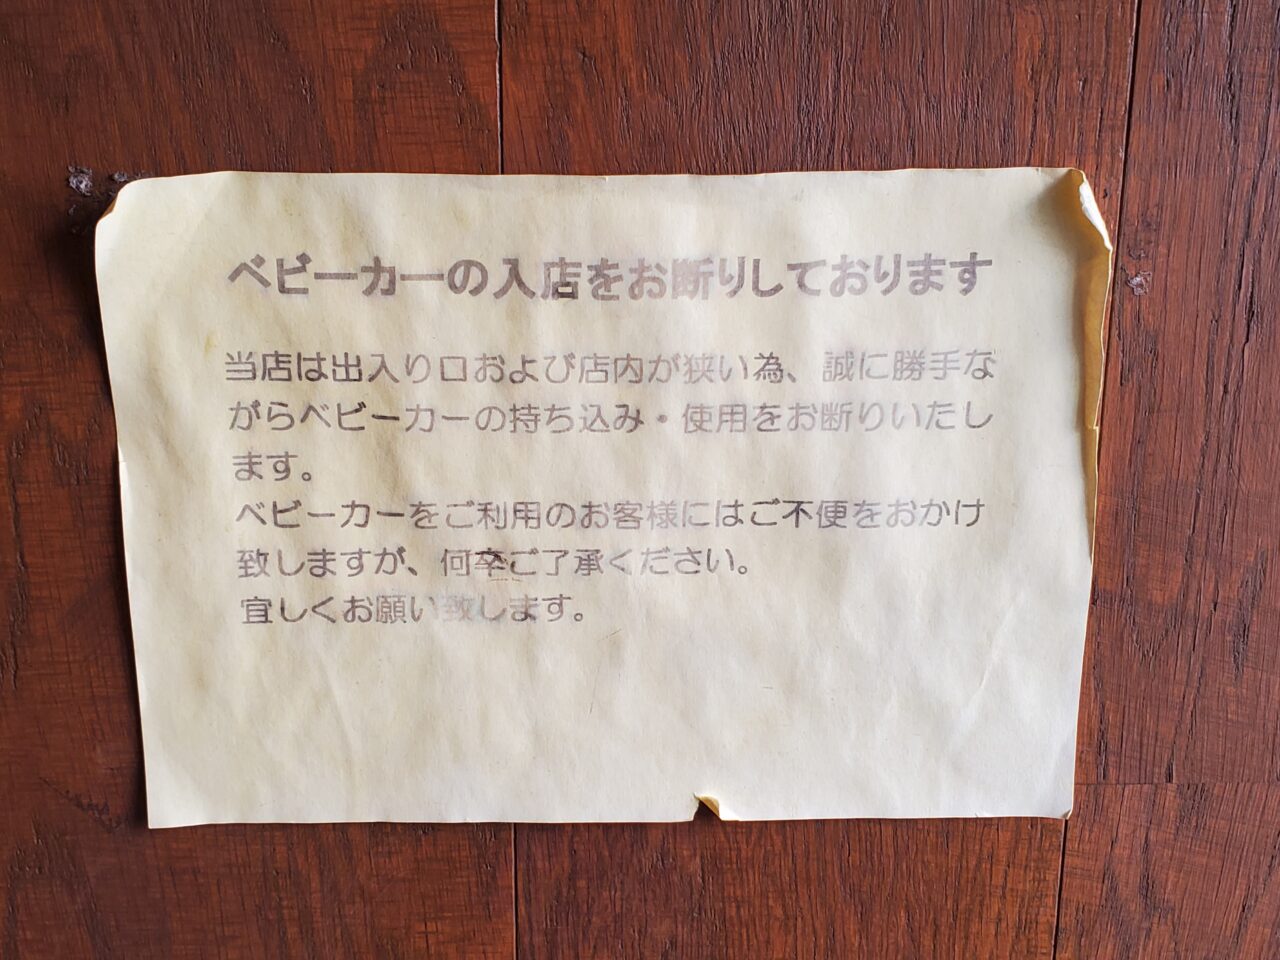 ベビーカーの入店をお断りしております
当店は出入り口および店内が狭い為、誠に勝手な
がらベビーカーの持ち込み・使用をお断りいたし
ます。
ベビーカーをご利用のお客様にはご不便をおかけ
致しますが、何卒ご了承ください。
宜しくお願い致します。